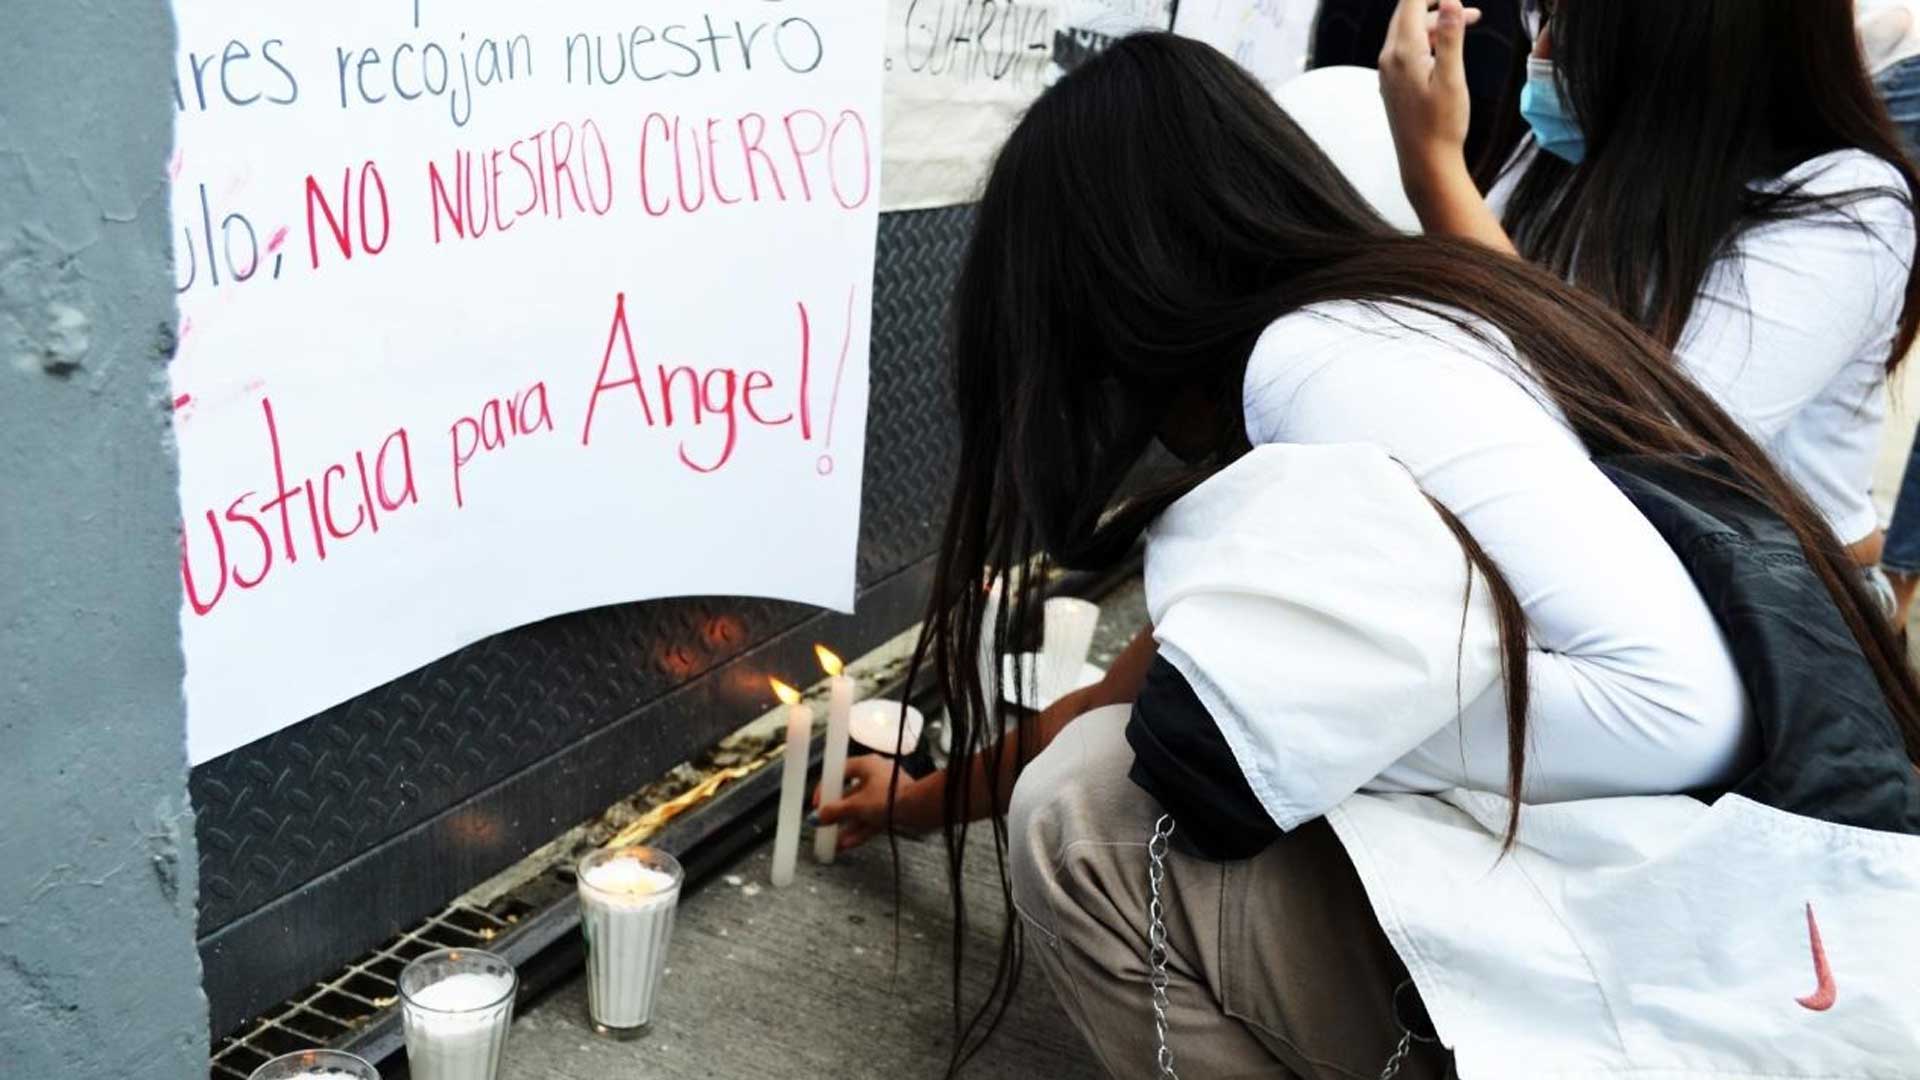 res recojan nuestro
ulo, NO NUESTRO CUERPO
usticia para Angel!
GUARDIA